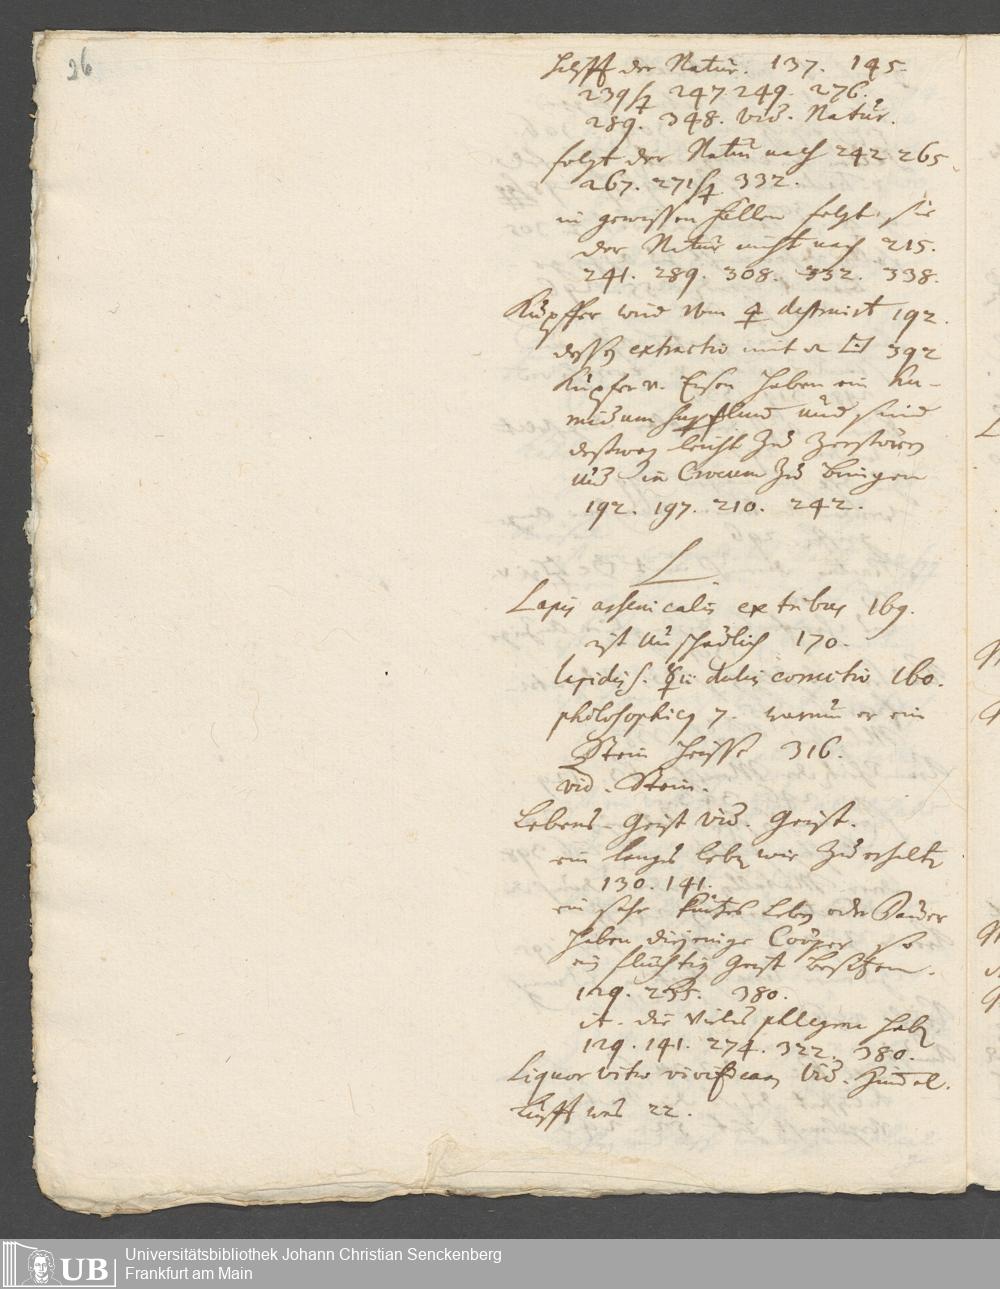 26
hilfft der Natur. 137. 145.
239 sq 247 249. 276.
289. 348. vid. Natur.
folgt der Natur nach 242 265
267. 271 sq 332.
in gewissen fällen folgt sie
der Natur nicht nach 215.
241. 289. 308. 332. 338.
Kupffer wird vom ☿ destruirt 192.
extractio mit 392
Kupfer v. Eisen haben ein hu-
midum und sind
destweg leicht zu zerstören
und in Crocum zu bringen
192. 197. 210. 242.
L
Lapis arsenicalis ex tribus 169.
ist unschädlich 170.
lapidis correctio 160.
philosophicus 7. warum er ein
Stein heisse 316.
vid. Stein.
Lebens-Geist vid. Geist.
ein langes leben wie zu erhalten
130. 141.
ein sehr kurtzes Leben oder Dauer
haben diejenige Cörper so
ein flüchtig Geist besitzen.
129. 255. 380.
it. die vieles phlegma haben
129. 141. 274. 322. 380.
Liquor vitae vivificans vid.
Lufft was 22.
Universitätsbibliothek Johann Christian Senckenberg
UB Frankfurt am Main